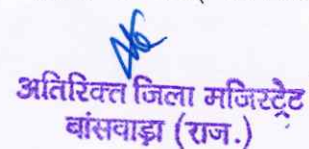 अतिरिक्त जिला मजिस्ट्रेट
बांसवाड़ा (राज.)